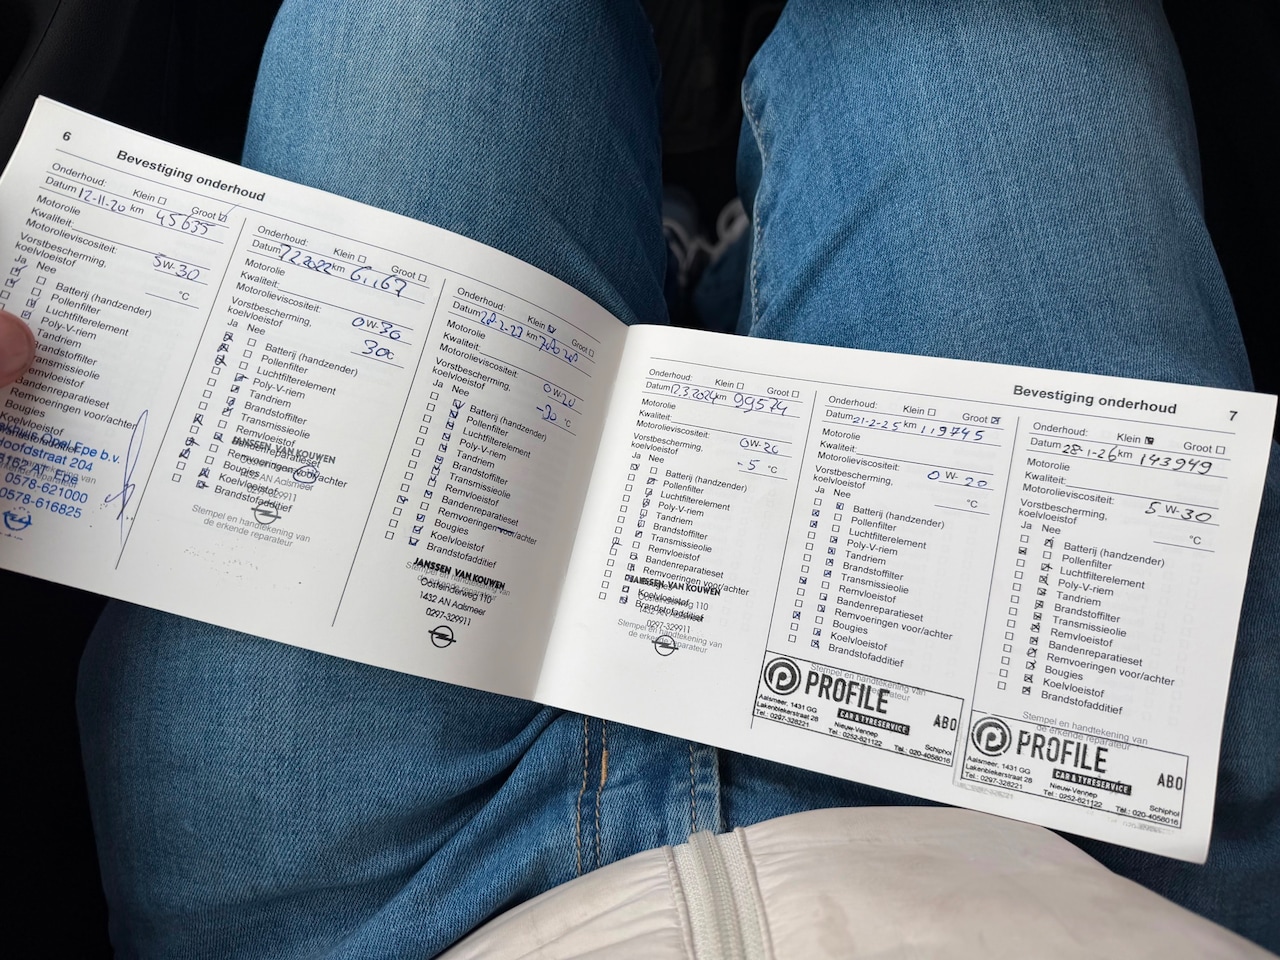 6
Bevestiging onderhoud
Onderhoud: Klein Groot
Datum 12-11-20 km 45635
Motorolie
Kwaliteit:
Motorolieviscositeit: 5W-30
Vorstbescherming,
koelvloeistof °C
Ja Nee
Batterij (handzender)
Pollenfilter
Luchtfilterelement
Poly-V-riem
Brandstoffilter
Transmissieolie
Remvloeistof
Bandenreparatieset
Remvoeringen voor/achter
Bougies
Koelvloeistof
Opel Epe b.v.
Hoofdstraat 204
8162 AT Epe
0578-621000
0578-616825
Onderhoud: Klein Groot
Datum 2022 km
Motorolie
Kwaliteit:
Motorolieviscositeit: 0W-30
Vorstbescherming, 30c
koelvloeistof
Ja Nee
Batterij (handzender)
Pollenfilter
Luchtfilterelement
Poly-V-riem
Tandriem
Brandstoffilter
Remvloeistof
Bandenreparatieset
Remvoeringen voor/achter
Bougies
Koelvloeistof
Brandstofadditief
JANSSEN VAN KOUWEN
AN Aalsmeer
Stempel en handtekening van
de erkende reparateur
Onderhoud: Klein Groot
Datum km
Motorolie
Kwaliteit:
Motorolieviscositeit: 0W-20
Vorstbescherming,
koelvloeistof °C
Ja Nee
Batterij (handzender)
Pollenfilter
Luchtfilterelement
Poly-V-riem
Tandriem
Brandstoffilter
Transmissieolie
Remvloeistof
Bandenreparatieset
Remvoeringen voor/achter
Bougies
Koelvloeistof
Brandstofadditief
JANSSEN VAN KOUWEN
Oosteinderweg 110
1432 AN Aalsmeer
0297-329911
7
Bevestiging onderhoud
Onderhoud: Klein Groot
Datum 12.3.2024 km 99574
Motorolie
Kwaliteit:
Motorolieviscositeit: 0W-20
Vorstbescherming,
koelvloeistof -5 °C
Ja Nee
Batterij (handzender)
Pollenfilter
Luchtfilterelement
Poly-V-riem
Tandriem
Brandstoffilter
Transmissieolie
Remvloeistof
Bandenreparatieset
Remvoeringen voor/achter
Koelvloeistof
Brandstofadditief
JANSSEN VAN KOUWEN
Oosteinderweg 110
0297-329911
Stempel en handtekening van
de erkende reparateur
Onderhoud: Klein Groot
Datum 21-2-25 km 119745
Motorolie
Kwaliteit:
Motorolieviscositeit: 0W-20
Vorstbescherming,
koelvloeistof °C
Ja Nee
Batterij (handzender)
Pollenfilter
Luchtfilterelement
Poly-V-riem
Tandriem
Brandstoffilter
Transmissieolie
Remvloeistof
Bandenreparatieset
Remvoeringen voor/achter
Bougies
Koelvloeistof
Brandstofadditief
Stempel en handtekening van
de erkende reparateur
PROFILE
CAR & TYRESERVICE ABO
Aalsmeer, 1431 GG Nieuw-Vennep Schiphol
Lakenblekerstraat 28 Tel : 0252-621122 Tel.: 020-4058016
Tel.: 0297-328221
Onderhoud: Klein Groot
Datum 28-1-26 km 143949
Motorolie
Kwaliteit:
Motorolieviscositeit: 5W-30
Vorstbescherming,
koelvloeistof °C
Ja Nee
Batterij (handzender)
Pollenfilter
Luchtfilterelement
Poly-V-riem
Tandriem
Brandstoffilter
Transmissieolie
Remvloeistof
Bandenreparatieset
Remvoeringen voor/achter
Bougies
Koelvloeistof
Brandstofadditief
Stempel en handtekening van
de erkende reparateur
PROFILE
CAR & TYRESERVICE ABO
Aalsmeer, 1431 GG Nieuw-Vennep Schiphol
Lakenblekerstraat 28 Tel : 0252-621122 Tel.: 020-4058016
Tel.: 0297-328221